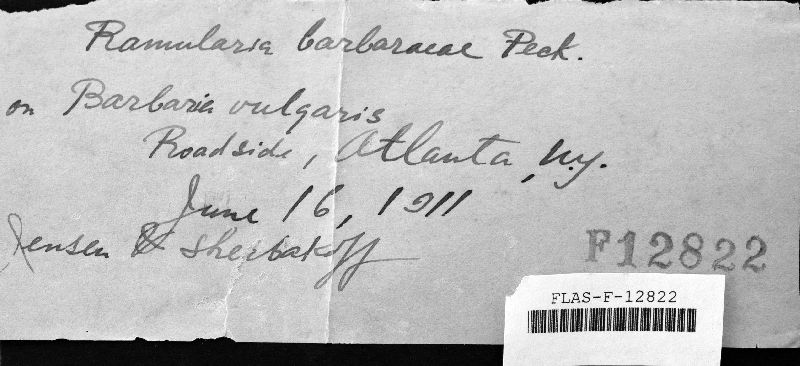 Ramularia barbaraeae Peck.
on Barbaria vulgaris
Roadside, Atlanta, N.Y.
June 16, 1911
Jensen & Sherbakoff
F12822
FLAS-F-12822